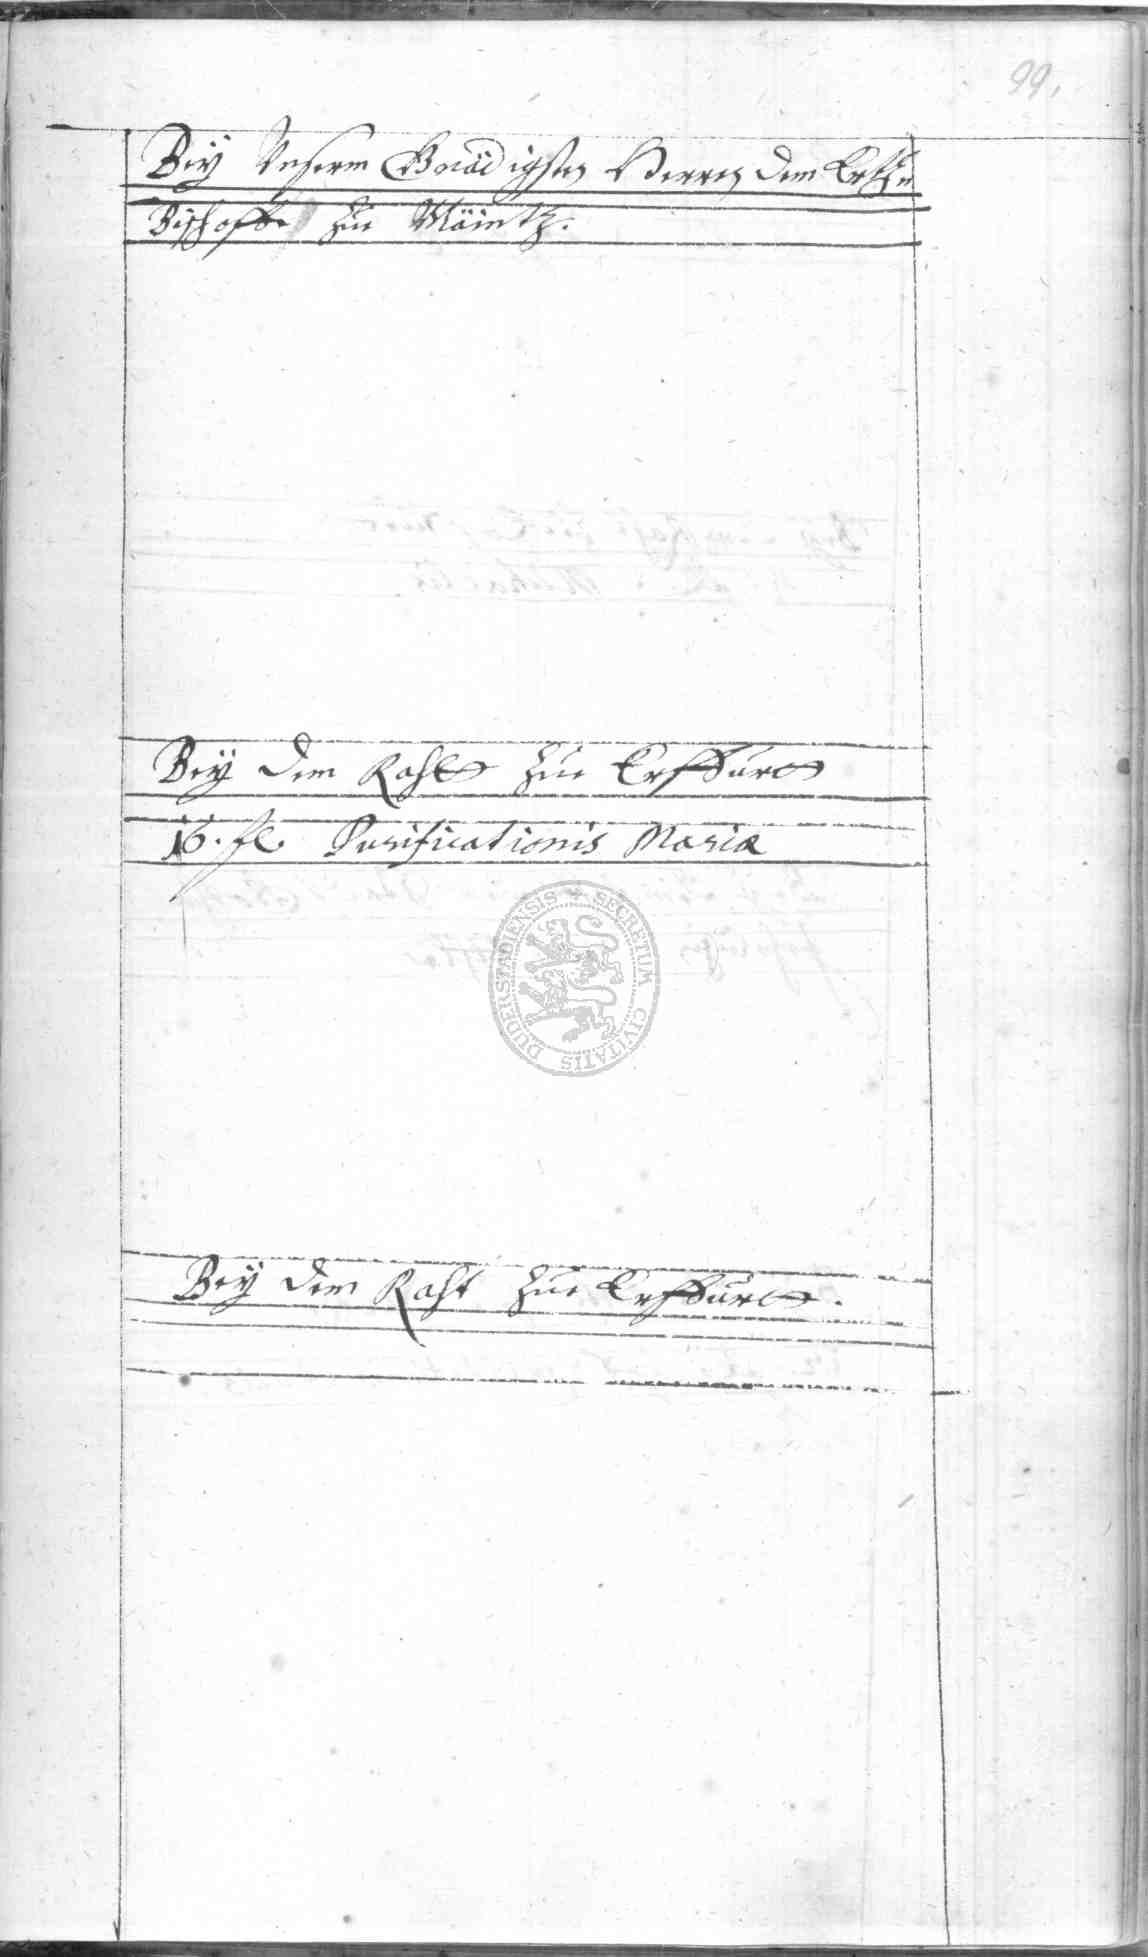 99.
Beÿ Unserm Gnädigsten Herren dem Ertze
Bischoffe zue Mäintz.
Beÿ dem Rahte zue Erffurt
16. fl. Purificationis Mariæ
SECRETUM CIVITATIS DUDERSTADIENSIS
Beÿ dem Raht zue Erffurt.